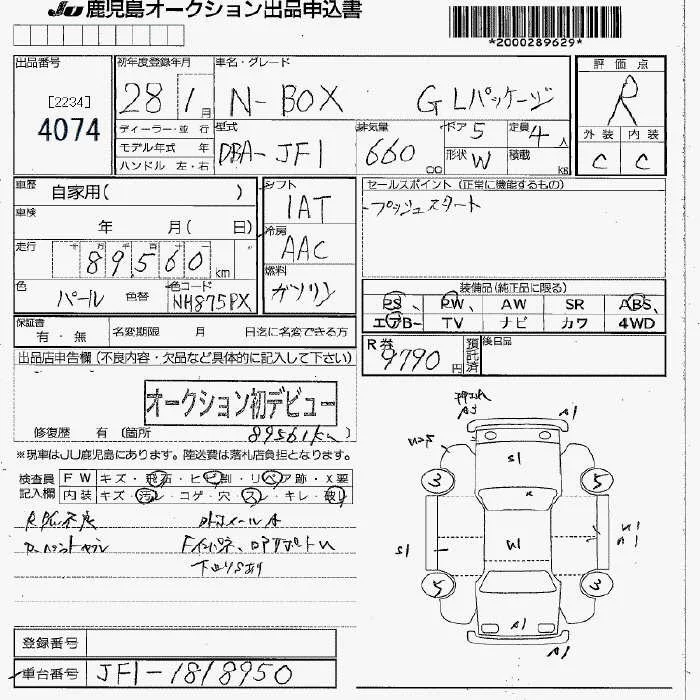 JU 鹿児島オークション出品申込書
*2000289629*
出品番号
[2234]
4074
初年度登録年月
28 1月
車名・グレード
N-BOX GLパッケージ
評価点
R
外装 内装
C C
ディーラー・並行
モデル年式 年
ハンドル 左・右
型式
DBA-JF1
排気量
660 cc
ドア 5
形状 W
定員 4人
積載 kg
車歴 自家用( )
車検 年 月( 日)
走行 十万千百十一
89560 km
色 パール 色替
色コード
NH875PX
シフト
IAT
冷房
AAC
燃料
ガソリン
セールスポイント (正常に機能するもの)
プッシュスタート
装備品(純正品に限る)
PS、 PW、 AW SR ABS、
エアB- TV ナビ カワ 4WD
保証書
有・無
名変期限 月 日迄に名変できる方
R券
9790円
預託済
後日品
出品店申告欄(不良内容・欠品など具体的に記入して下さい)
オークション初デビュー
修復歴 有 (箇所 89561km )
※現車はJU鹿児島にあります。陸送費は落札店負担となります。
検査員
記入欄
FW キズ・飛石・ヒビ割・リペア跡・X要
内装 キズ・汚レ・コゲ・穴・スレ・キレ・破レ
下回りSあり
A1
3 5
5 3
A1
A1
登録番号
車台番号 JF1-1818950